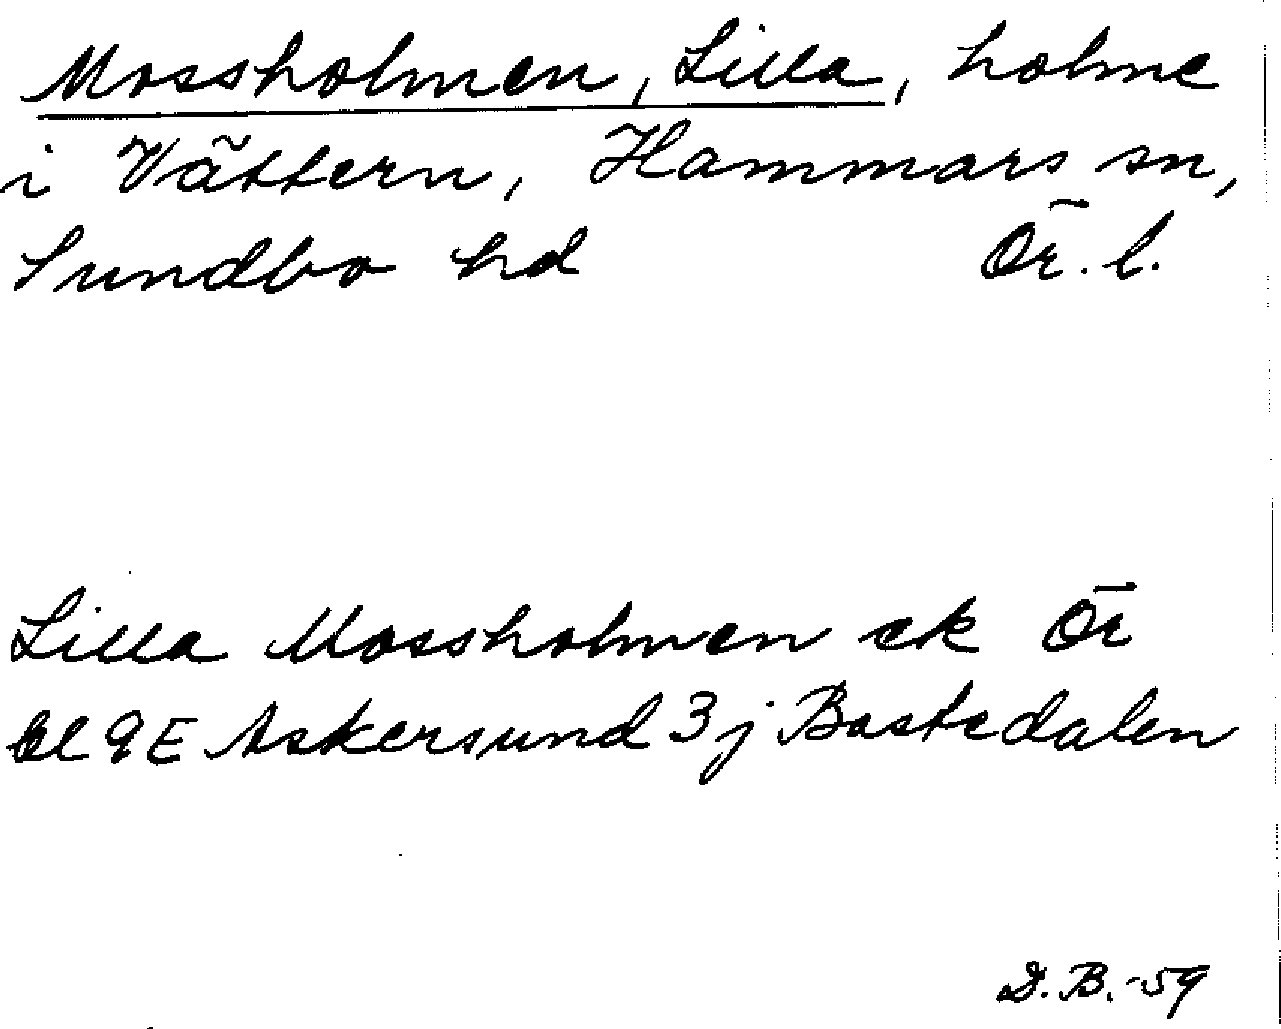 Mossholmen, Lilla, holme
i Vättern, Hammars sn,
Sundbo hd Ör. l.
Lilla Mossholmen ek Ör
bl 9E Askersund 3j Bastedalen
D.B.-59